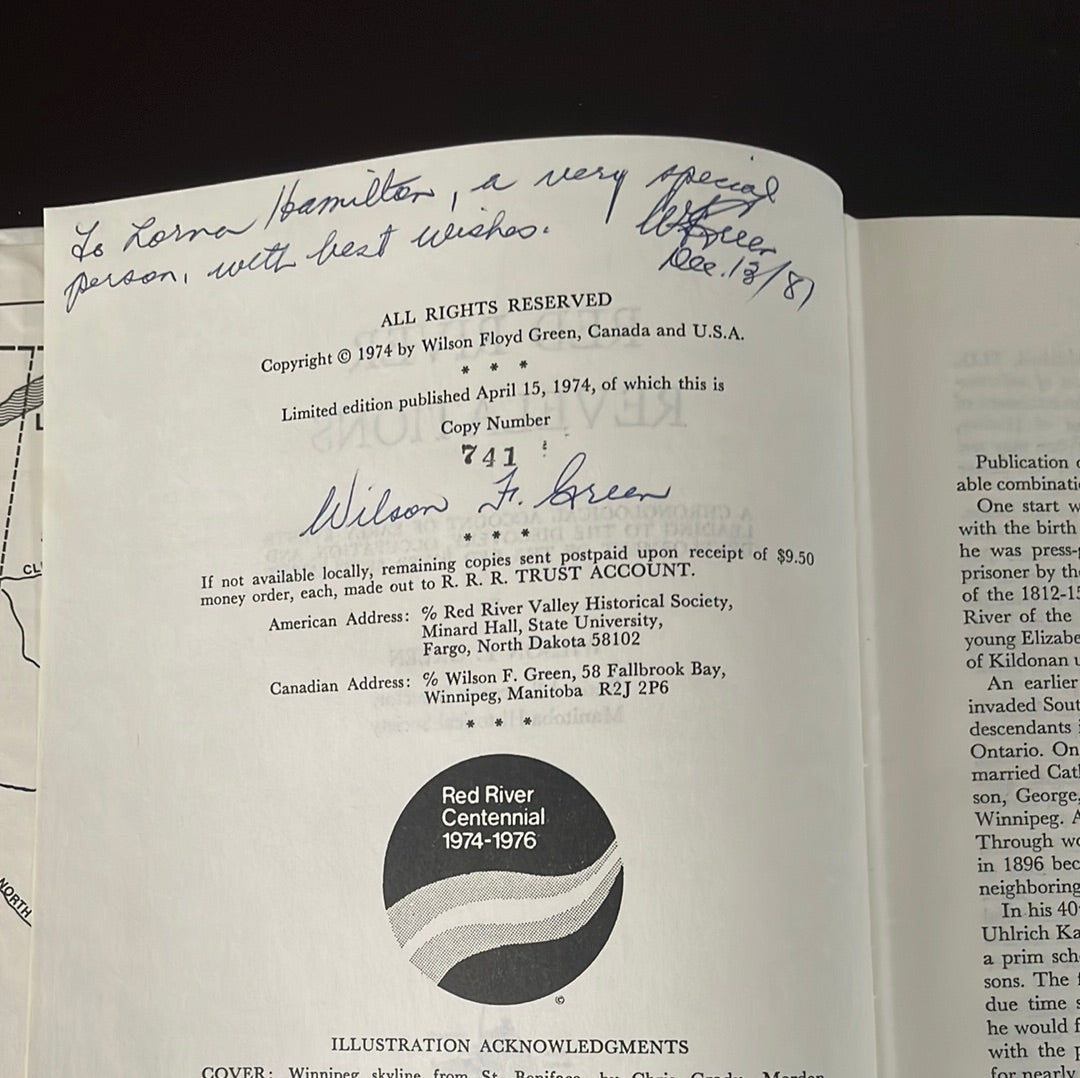 To Lorna Hamilton, a very special
person, with best wishes.
Green
Dec. 13/81
ALL RIGHTS RESERVED
Copyright © 1974 by Wilson Floyd Green, Canada and U.S.A.
* * *
Limited edition published April 15, 1974, of which this is
Copy Number
741
Wilson F. Green
* * *
If not available locally, remaining copies sent postpaid upon receipt of $9.50
money order, each, made out to R. R. R. TRUST ACCOUNT.
American Address: % Red River Valley Historical Society,
Minard Hall, State University,
Fargo, North Dakota 58102
Canadian Address: % Wilson F. Green, 58 Fallbrook Bay,
Winnipeg, Manitoba R2J 2P6
* * *
Red River
Centennial
1974-1976
©
ILLUSTRATION ACKNOWLEDGMENTS
COVER: Winnipeg skyline from St. Boniface, by Chris
NORTH
Publication
able
One start
with the birth
he was
prisoner by
of the
River of the
young
of Kildonan
An earlier
invaded
descendants
Ontario.
married
son, George,
Winnipeg.
Through
in 1896
neighboring
In his
Uhlrich
a prim
sons. The
due time
he would
with the
for nearly